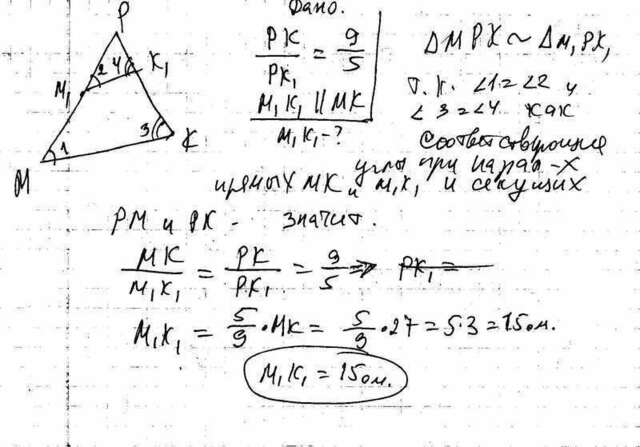 P
M₁ 2 4 K₁
3 K
1
M
Дано.
PK/PK₁ = 9/5
M₁K₁ || MK
M₁K₁ - ?
ΔMPK ~ ΔM₁PK₁
т.к. ∠1=∠2 и
∠3=∠4 как
соответствующие
углы при парал-х
прямых MK и M₁K₁ и секущих
PM и PK - значит.
MK/M₁K₁ = PK/PK₁ = 9/5 => PK₁ =
M₁K₁ = 5/9 · MK = 5/9 · 27 = 5·3 = 15см.
M₁K₁ = 15см.